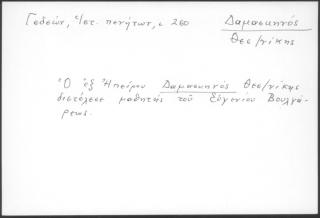 Γεδεών, Ἱστ. πενήτων, σ 260
Δαμασκηνός
Θεσ/νίκης
Ὁ ἐξ Ἠπείρου Δαμασκηνός Θεσ/νίκης
διετέλεσε μαθητής τοῦ Εὐγενίου Βουλγά-
ρεως.